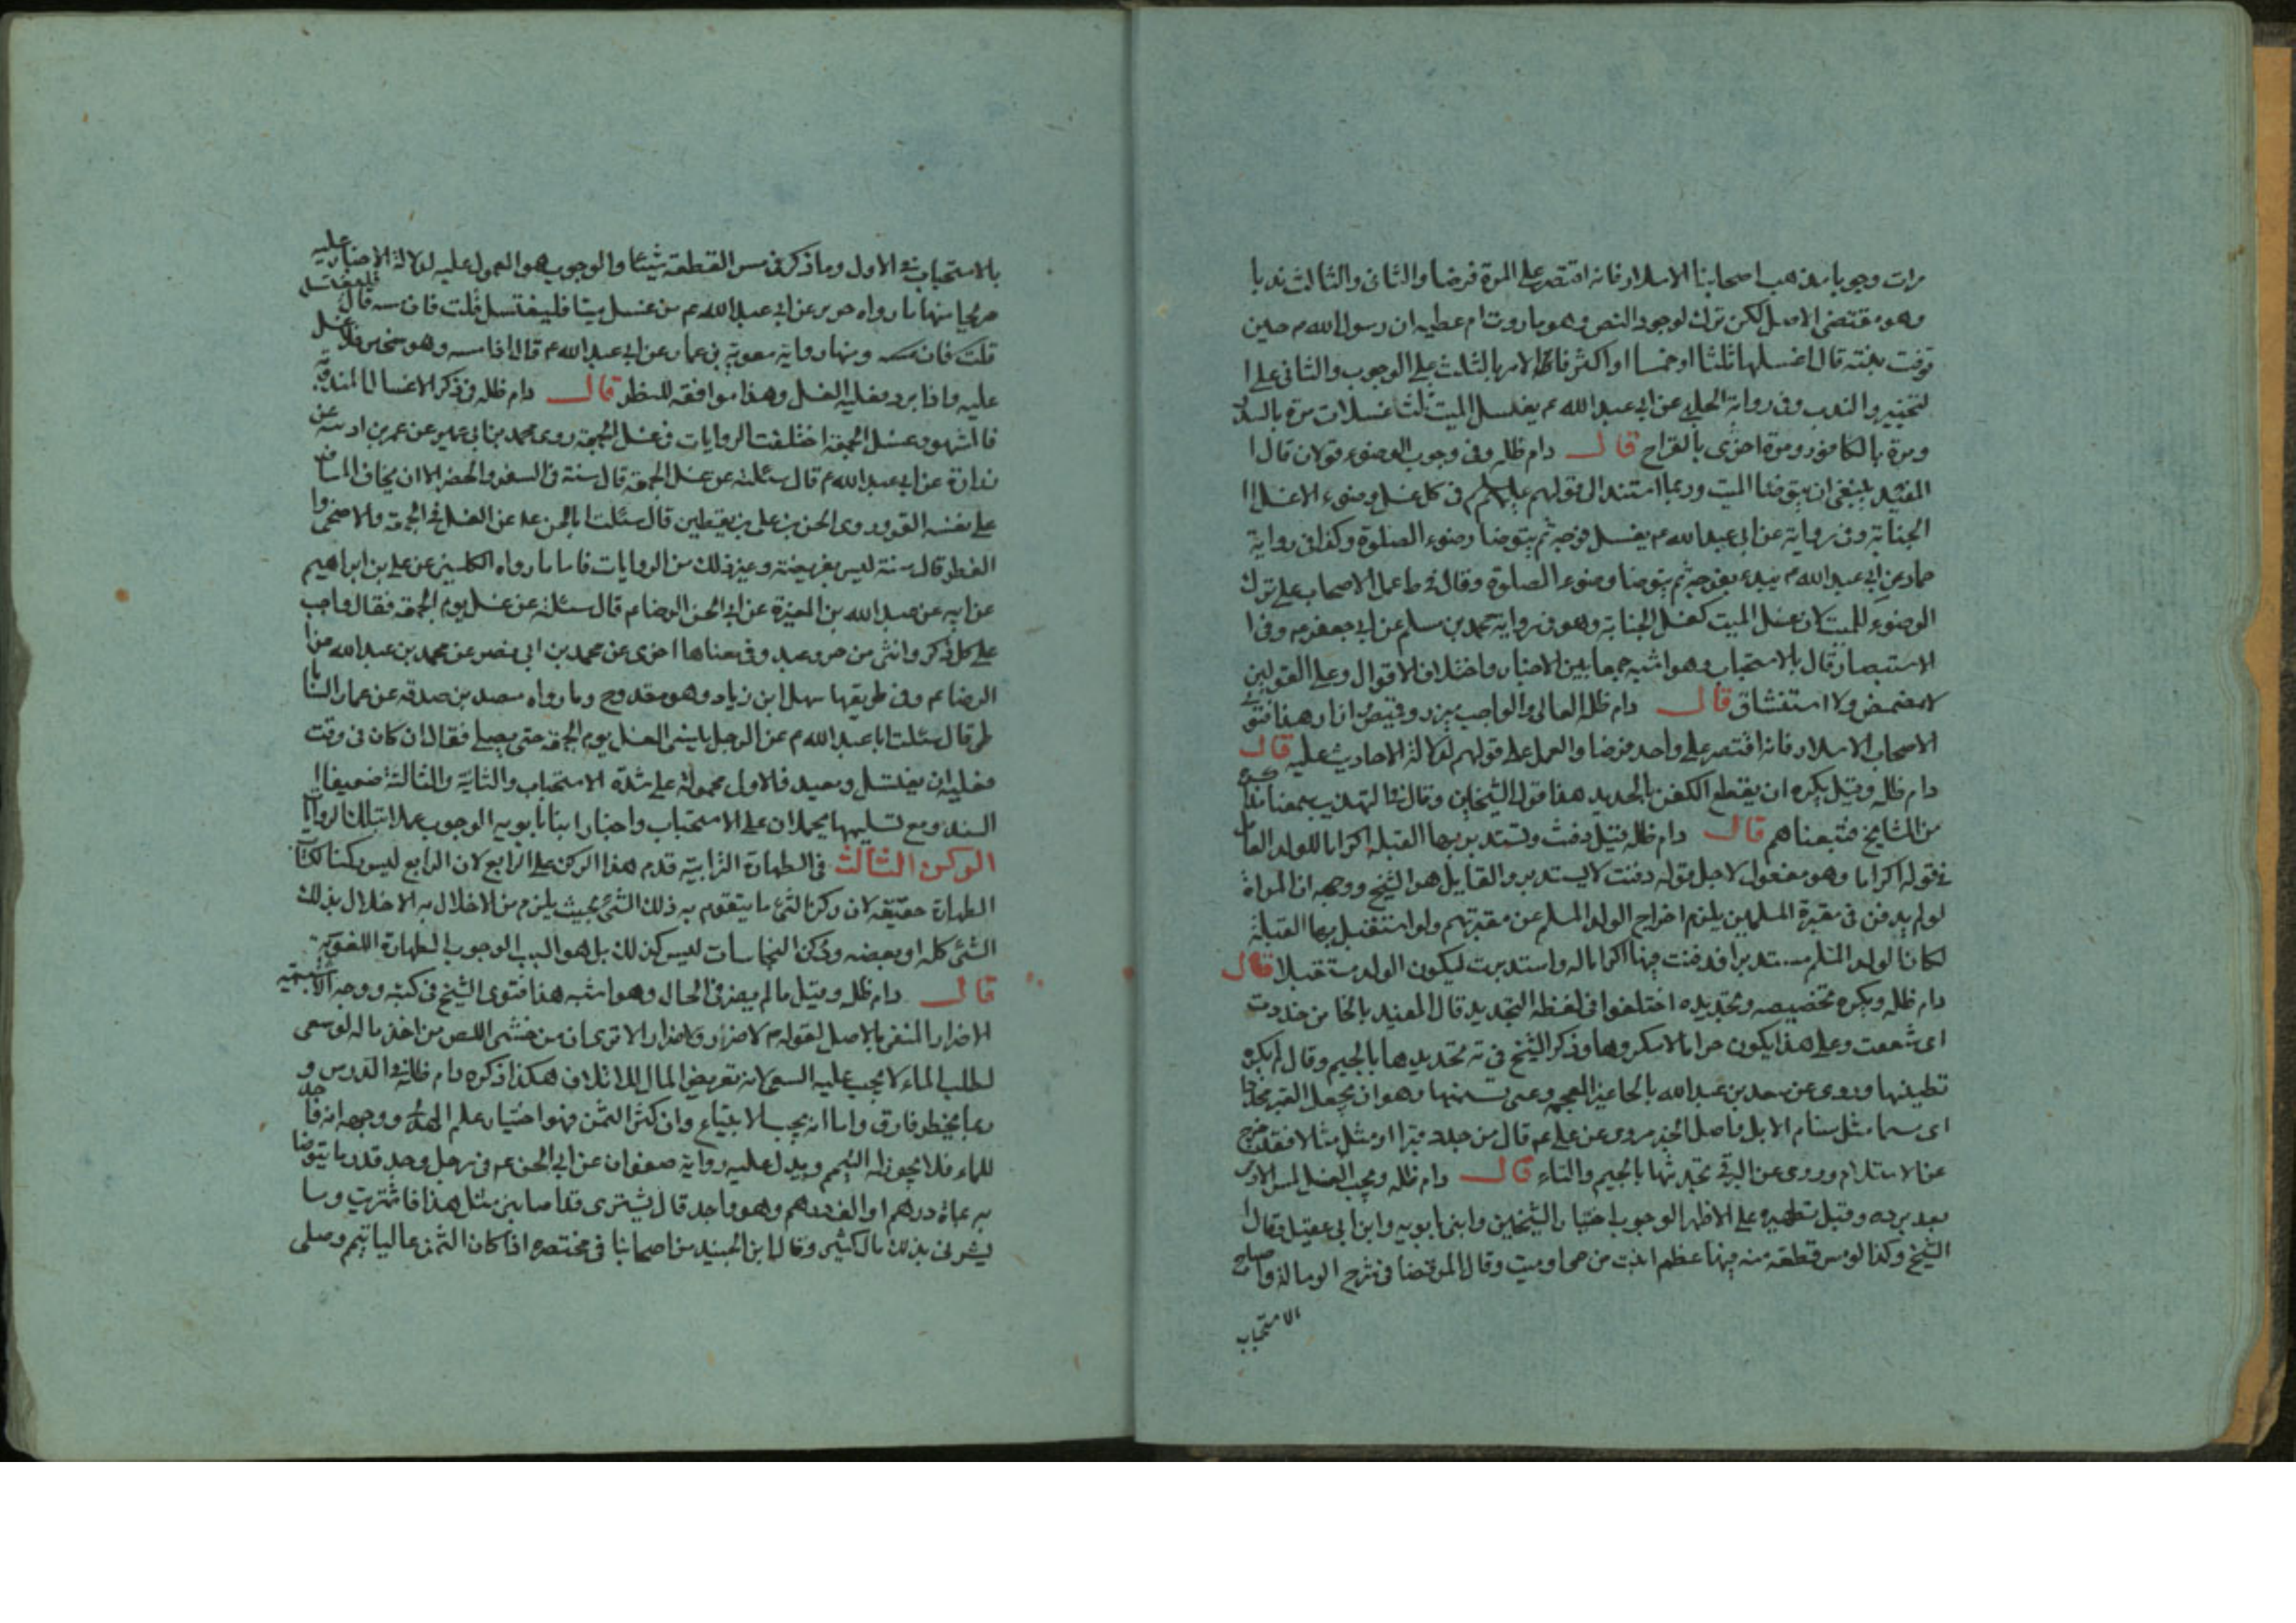 مرات وجوبا مذهب اصحابنا الا سلار فانه اقتصر على المرة فرضا والثانى والثالث ندبا
وهو مقتضى الاصل لكن ترك لوجود النص وهو ما روت ام عطيه ان رسول الله ص حين
توفت بنته قال اغسلها ثلثا او خمسا او اكثر فالامر بالثلث على الوجوب والثانى على ا
لتخيير والندب وفى رواية الحلبى عن ابى عبد الله ع يغسل الميت ثلث غسلات مرة بالسدر
ومرة بالكافور ومرة اخرى بالقراح قال دام ظله وفى وجوب الوضوء قولان قال ا
المفيد ينبغى ان يتوضا الميت وربما استند الى قولهم عليهم السلام فى كل غسل وضوء الا غسل ا
الجنابة وفى رواية عن ابى عبد الله ع يغسل فرجه ثم يتوضا وضوء الصلوة وكذا فى رواية
حماد عن ابى عبد الله ع يبدء بفرجه ثم يتوضا وضوء الصلوة وقال فى ط عمل الاصحاب على ترك
الوضوء للميت لان غسل الميت كغسل الجنابة وهو فى رواية محمد بن مسلم عن ابى جعفر ع وفى ا
الاستبصار قال بالاستحباب وهو اشبه جمعا بين الاخبار واختلاف الاقوال وعلى القولين
لا مضمض ولا استنشاق قال دام ظله العالى والواجب ميزر وقميص وازار هذا فتوى
الاصحاب الا سلار فانه اقتصر على واحد فرضا والعمل على قولهم لدلالة الاحاديث عليه قال
دام ظله وقيل يكره ان يقطع الكفن بالحديد هذا قول الشيخين وقال فى التهذيب سمعناه مذاكرة
من الشايخ فتبعناهم قال دام ظله قيل دفنت وتستدبر بها القبله اكراما للولد العامل
فى قوله اكراما وهو مفعول لاجل قوله دفنت لا يستدبر والقايل هو الشيخ ووجهه ان المراة
لو لم يدفن فى مقبرة المسلمين يلزم اخراج الولد المسلم عن مقبرتهم ولو استقبل بها القبلة
لكان الولد المسلم مستدبرا فدفنت فيها اكراما له واستدبرت ليكون الولد مستقبلا قال
دام ظله ويكره تجصيصه وتجديده اختلفوا فى لفظه التجديد قال المفيد بالخا من خددت
اى شققت وعلى هذا يكون حراما لا مكروها وذكر الشيخ فى ته تجديدها بالجيم وقال لم يكره
تطيينها وروى عن سعد بن عبد الله بالحا غير المعجمه وعنى تسنيمها وهو ان يجعل القبر محدبا
اى سنما مثل سنام الابل فاصل الخبر مروى عن على ع قال من جدد قبرا او مثل مثالا فقد خرج
عن الاسلام وروى عن البرقى تجدثها بالجيم والثاء قال دام ظله ويجب الغسل لمس الادمى
بعد برده وقبل تطهيره على الاظهر الوجوب اختيار الشيخين وابنى بابويه وابن ابى عقيل وقال ا
الشيخ وكذا لو مس قطعة منه فيها عظم ابينت من حى او ميت وقال المرتضا فى شرح الرسالة والمصباح
الاستحباب
بالاستحباب فى الاول وما ذكر فى مس القطعة شيئا والوجوب هو المعول عليه لدلالة الاخبار عليه
صريحا منها ما رواه حريز عن ابى عبد الله ع من غسل ميتا فليغتسل قلت فان مسه قال فليغتسل
قلت فان مسه ومنها رواية معوية بن عمار عن ابى عبد الله ع قال اذا مسه وهو سخين فلا غسل
عليه واذا برد فعليه الغسل وهذا موافقه للنظر قال دام ظله فى ذكر الاغسال المندوبة
فالمشهور غسل الجمعة اختلفت الروايات فى غسل الجمعة روى محمد بن ابى عمير عن عمر بن اذينه عن
زرارة عن ابى عبد الله ع قال سئلته عن غسل الجمعة قال سنة فى السفر والحضر الا ان يخاف المسافر
على نفسه القر وروى الحسن بن على بن يقطين قال سئلت ابا الحسن ع عن الغسل فى الجمعة والاضحى وا
الفطر قال سنة ليس بفريضة وغير ذلك من الروايات فاما ما رواه الكلينى عن على بن ابراهيم
عن ابيه عن عبد الله بن المغيرة عن ابى الحسن الرضا ع قال سئلته عن غسل يوم الجمعة فقال واجب
على كل ذكر وانثى من حر وعبد وفى معناها اخرى عن محمد بن ابى نصر عن محمد بن عبد الله عن ا
الرضا ع وفى طريقها سهل ابن زياد وهو مقدوح وما رواه مصدق بن صدقه عن عمار السابا
طى قال سئلت ابا عبد الله ع عن الرجل ينسى الغسل يوم الجمعة حتى يصلى فقال ان كان فى وقت
فعليه ان يغتسل ويعيد فالاول محمولة على شدة الاستحباب والثانية والثالثة ضعيفا ا
السند ومع تسليمها يحملان على الاستحباب واختار ابنا بابويه الوجوب عملا بتلك الروايات
الركن الثالث فى الطهارة الترابية قدم هذا الركن على الرابع لان الرابع ليس ركنا لكتاب
الطهارة حقيقه لان ركن الشئ ما يتقوم به ذلك الشئ بحيث يلزم من الاخلال به الاخلال بذلك
الشئ كله او بعضه وركن النجاسات ليس كذلك بل هو السبب الوجوب الطهارة اللغوية
قال دام ظله وقيل ما لم يضر فى الحال وهو اشبه هذا فتوى الشيخ فى كتبه ووجه الاشبهيه
الاضرار المنفى بالاصل لقوله ع لا ضرر ولا ضرار الا ترى ان من خشى اللص من اخذ ماله لو سعى
لطلب الماء لا يجب عليه السعى لانه تعريض المال للاتلاف هكذا ذكره دام ظله فى الدرس و
ربما يخطر فارق واما انه يجب الابتياع وان كثر الثمن فهو اختيار علم الهدى ووجهه انه واجد
للماء فلا يجوز له التيمم ويدل عليه رواية صفوان عن ابى الحسن ع فى رجل وجد قدر ما يتوضا
به بمائة درهم او الف درهم وهو واجد قال يشترى قد اصابنى مثل هذا فاشتريت وما
يشرنى بذلك مال كثير وقال ابن الجنيد من اصحابنا فى مختصره اذا كان الثمن غاليا تيمم وصلى